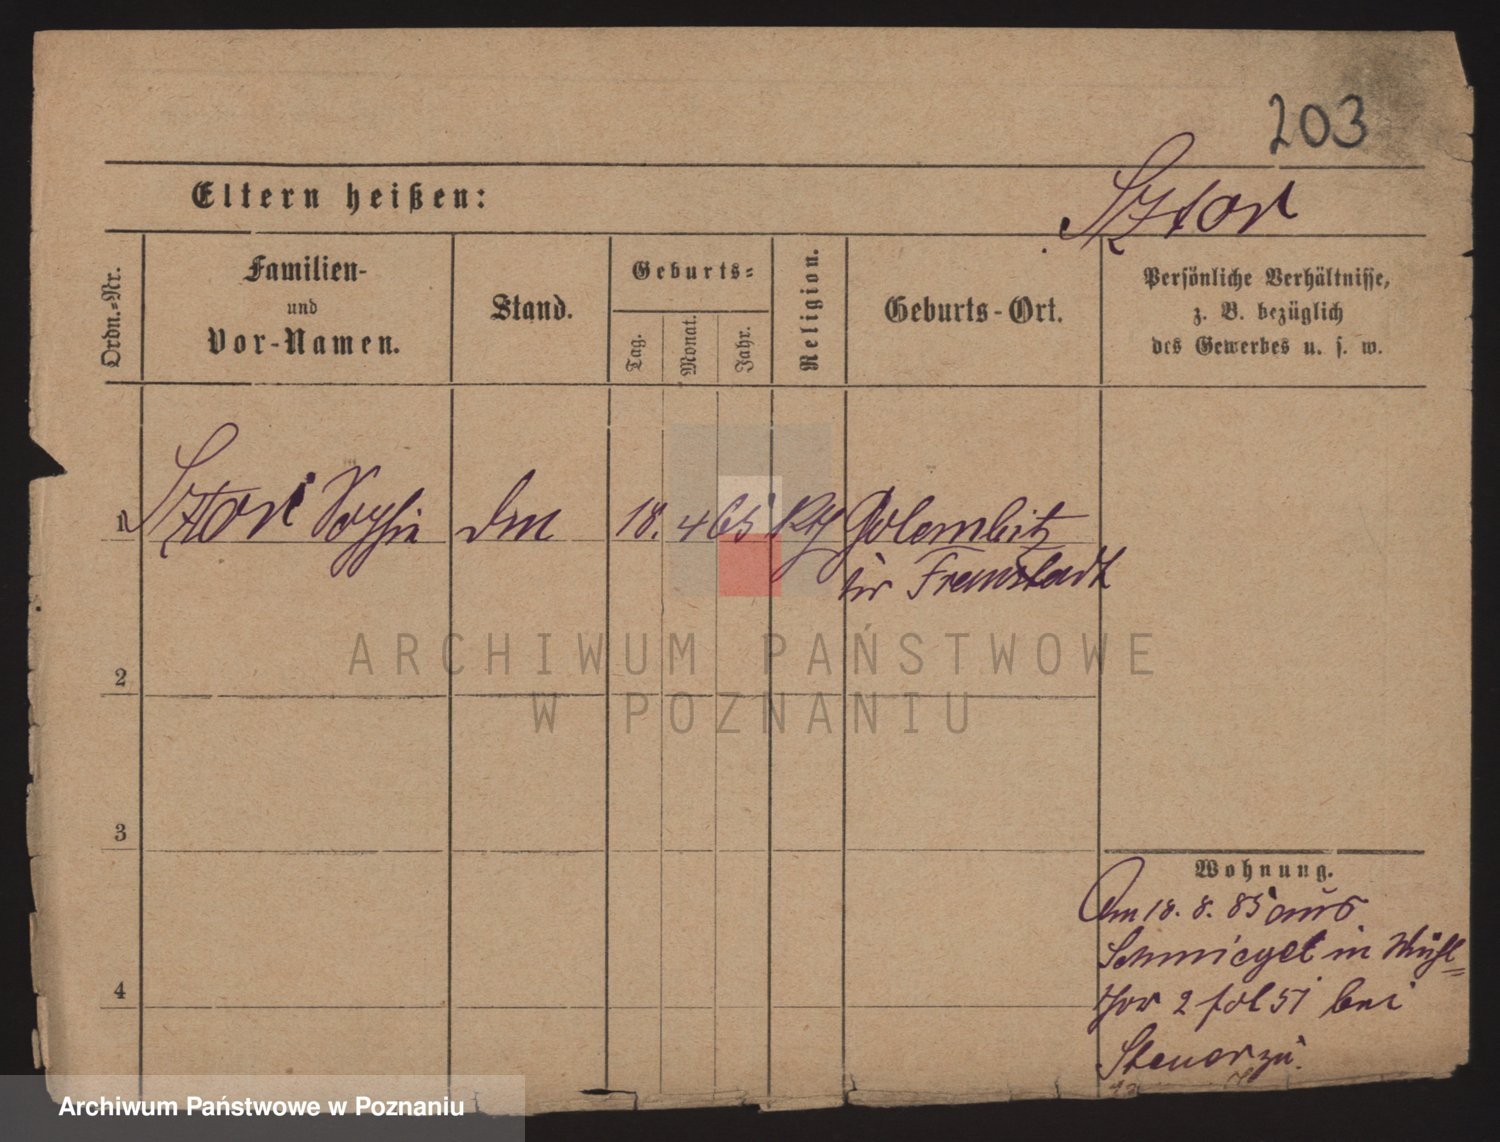 203
Eltern heißen:
Sztor
Ordn.-Nr.
Familien-
und
Vor-Namen.
Stand.
Geburts-
Tag.
Monat.
Jahr.
Religion.
Geburts-Ort.
Persönliche Verhältnisse,
z. B. bezüglich
des Gewerbes u. s. w.
1 Sztor Sophie 18. 4 65 Golembitz
Fraustadt
2
3
4
ARCHIWUM PAŃSTWOWE
W POZNANIU
Wohnung.
Am 18. 8. 85 aus
Schmiegel in Mühl=
thor 2 fol 51 bei
Archiwum Państwowe w Poznaniu